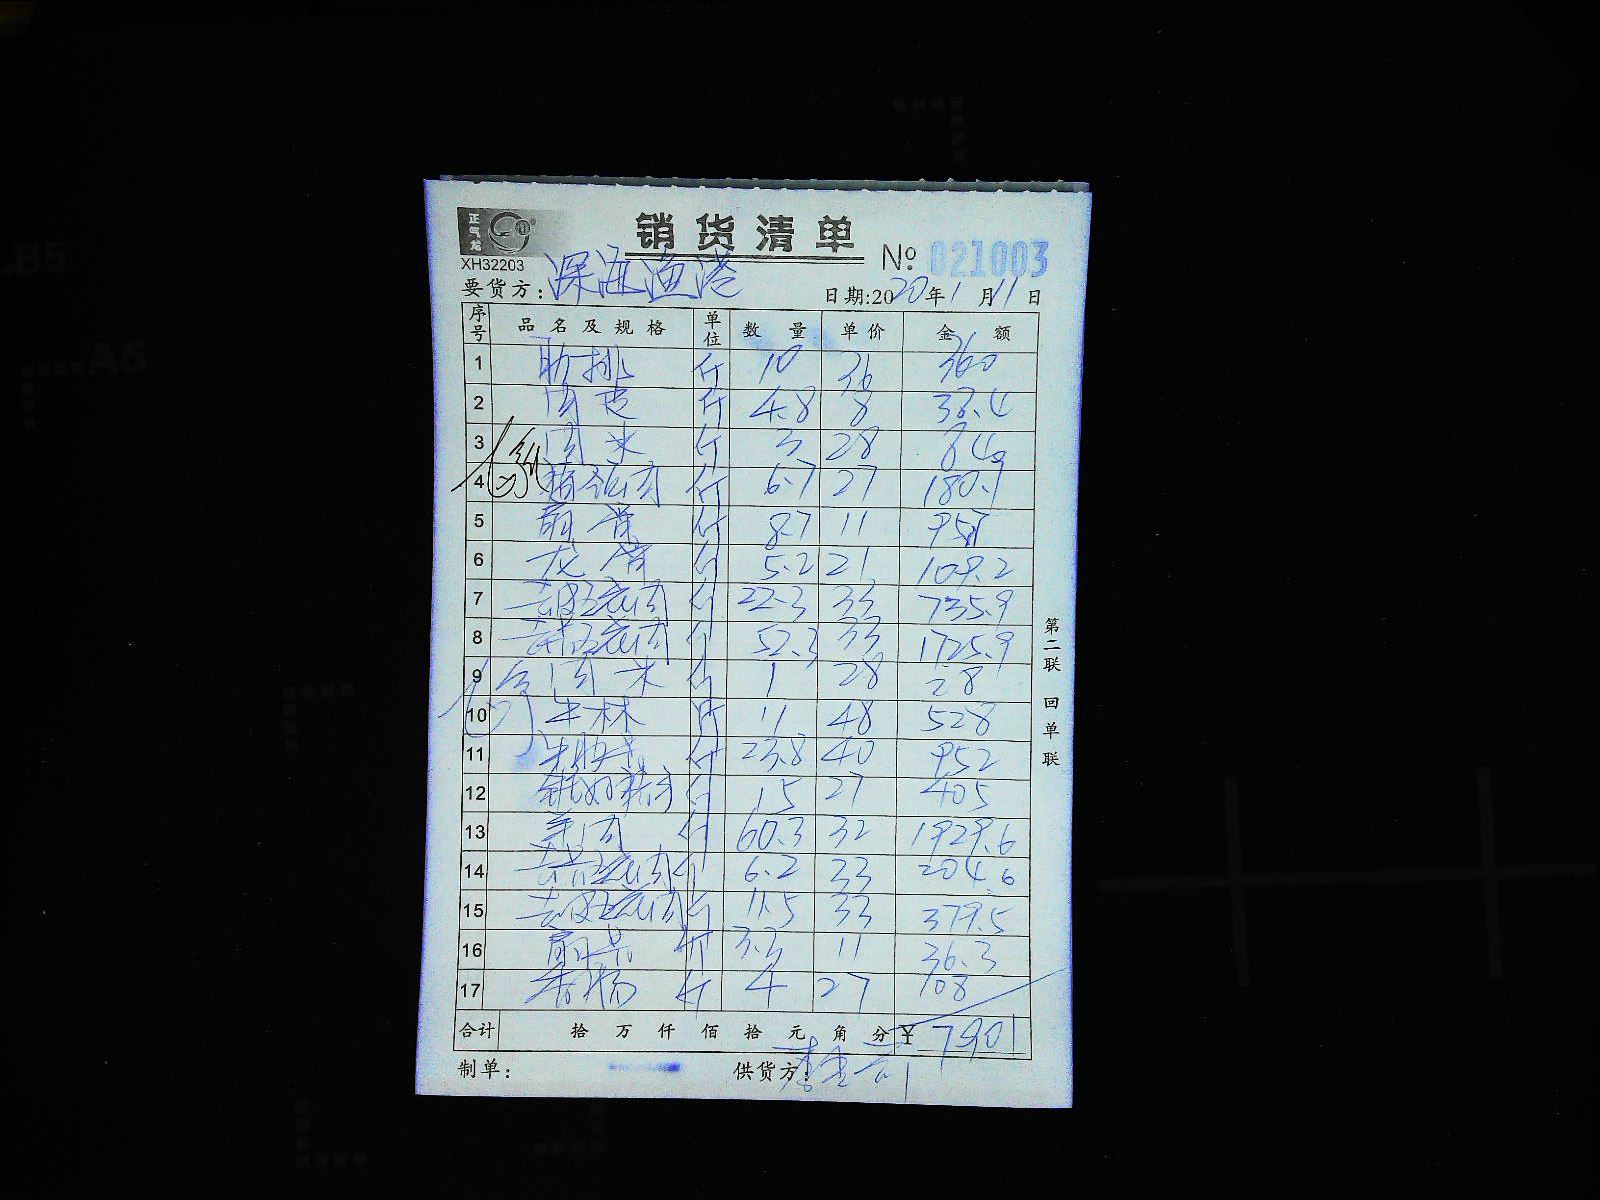 正气龙
销货清单
XH32203
№ 021003
要货方: 深海渔港 日期:2020年1月11日
序号 品名及规格 单位 数量 单价 金额
1 肋排 斤 10 36 360
2 肉皮 斤 4.8 8 38.4
3 肉米 斤 3 28 84
4 斤 6.7 27 180.9
5 扇骨 斤 8.7 11 95.7
6 龙骨 斤 5.2 21 109.2
7 去皮五花肉 斤 22.3 33 735.9
8 去皮五花肉 斤 52.3 33 1725.9
9 肉米 斤 1 28 28
10 牛林 斤 11 48 528
11 斤 23.8 40 952
12 斤 15 27 405
13 斤 60.3 32 1929.6
14 去皮五花肉 斤 6.2 33 204.6
15 去皮五花肉 斤 11.5 33 379.5
16 扇骨 斤 3.3 11 36.3
17 斤 4 27 108
合计 拾 万 仟 佰 拾 元 角 分 ¥ 7901
制单: 供货方:
第二联 回单联